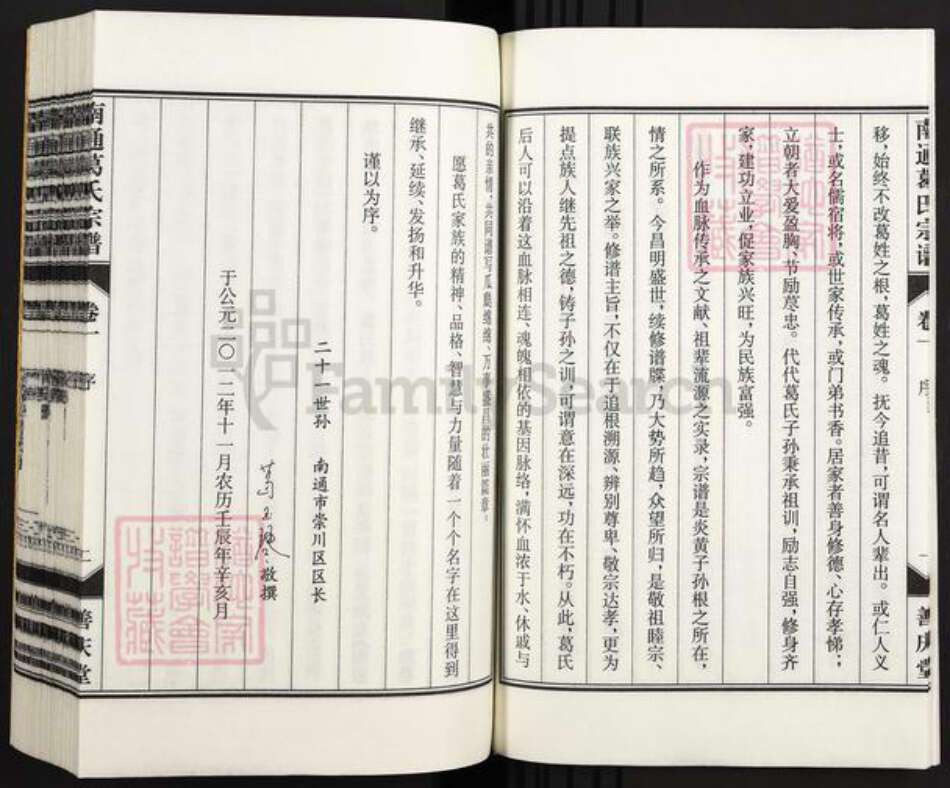 南通葛氏宗谱
卷一
序
善庆堂
移，始终不改葛姓之根，葛姓之魂。抚今追昔，可谓名人辈出。或仁人义
士，或名儒宿将，或世家传承，或门弟书香。居家者善身修德、心存孝悌；
立朝者大爱盈胸、节励荩忠。代代葛氏子孙秉承祖训，励志自强，修身齐
家，建功立业，促家族兴旺，为民族富强。
作为血脉传承之文献、祖辈流源之实录，宗谱是炎黄子孙根之所在，
情之所系。今昌明盛世，续修谱牒，乃大势所趋，众望所归，是敬祖睦宗、
联族兴家之举。修谱主旨，不仅在于追根溯源、辨别尊卑、敬宗达孝，更为
提点族人继先祖之德，铸子孙之训，可谓意在深远，功在不朽。从此，葛氏
后人可以沿着这血脉相连、魂魄相依的基因脉络，满怀血浓于水、休戚与
共的亲情，共同谱写瓜瓞绵绵、万事盛昌的壮丽篇章。
愿葛氏家族的精神、品格、智慧与力量随着一个个名字在这里得到
继承、延续、发扬和升华。
谨以为序。
二十一世孙 南通市崇川区区长
葛 敬撰
于公元二〇一二年十一月农历壬辰年辛亥月
南通葛氏宗谱
卷一
序
二
善庆堂
FamilySearch